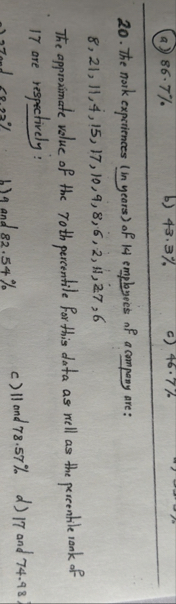 a) 86.7% b) 43.3% c) 46.7%
20. The work experiences (in years) of 14 employees of a company are:
8, 21, 11, 4, 15, 17, 10, 9, 8, 6, 2, 11, 27, 6
The approximate value of the 70th percentile for this data as well as the percentile rank of
17 are respectively:
b) 9 and 82.54% c) 11 and 78.57% d) 17 and 74.98